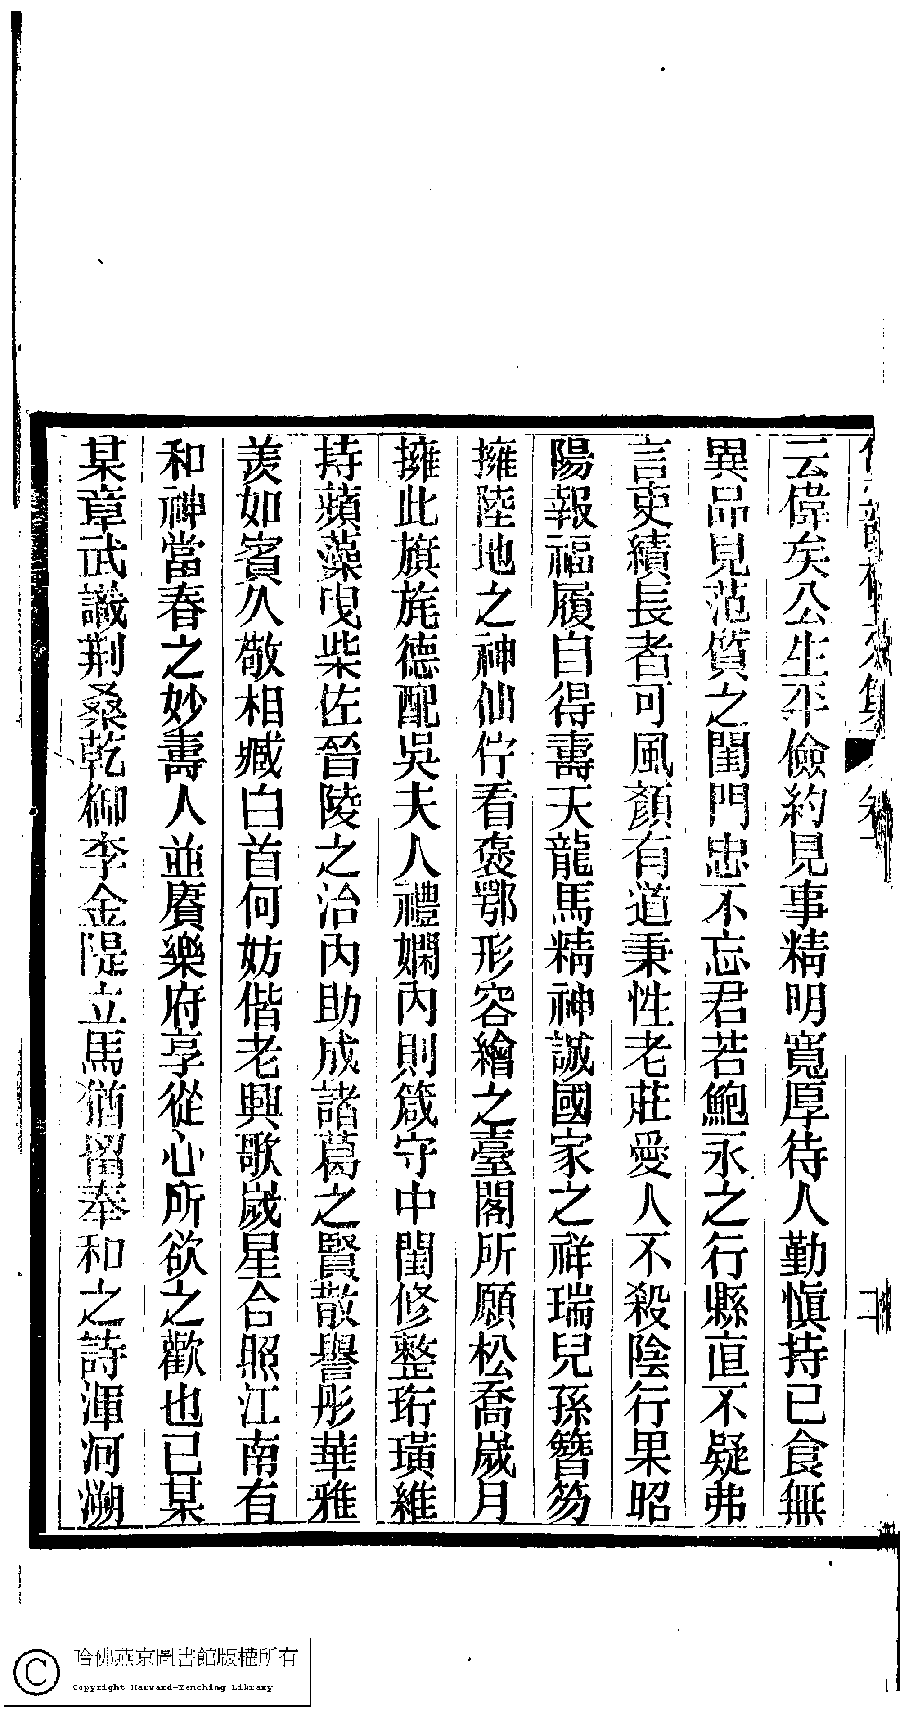 云偉矣公生平儉約見事精明寬厚待人勤愼持已食無
異品見范質之閨門忠不忘君若鮑永之行縣直不疑弗
言吏績長者可風顏有道秉性老莊愛人不殺陰行果昭
陽報福履自得壽天龍馬精神誠國家之祥瑞兒孫簪笏
擁陸地之神仙佇看褒鄂形容繪之臺閣所願松喬歲月
擁此旗旄德配吳夫人禮嫻內則箴守中閨修整珩璜維
持蘋藻曳柴佐晉陵之治內助成諸葛之賢散譽彤華雅
羨如賓久敬相臧白首何妨偕老興歌歲星合照江南有
和神當春之妙壽人並賡樂府享從心所欲之歡也已某
某章武識荆桑乾御李金隄立馬猶留奉和之詩渾河溯
哈佛燕京圖書館版權所有
Copyright Harvard-Yenching Library